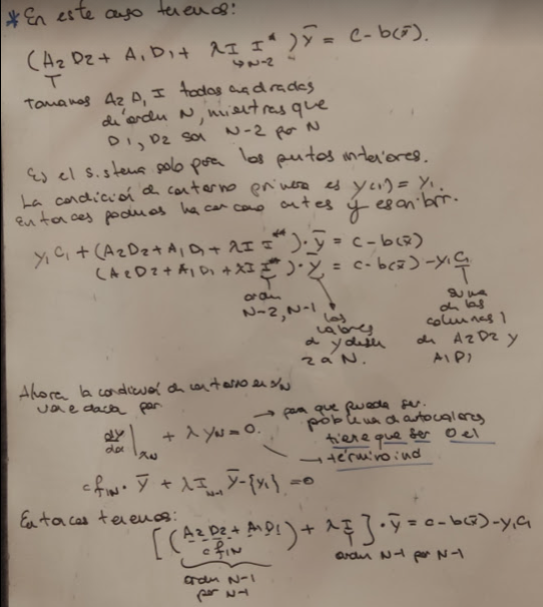 * En este caso tenemos:
(A2 D2 + A1 D1 + λI I*) ȳ = c - b(x̄).
↳ N-2
Tomamos A2 A1 I todas cuadradas
de orden N, mientras que
D1, D2 son N-2 por N
Es el sistema solo para los puntos interiores.
La condición de contorno primera es y(1) = y1.
Entonces podemos hacer como antes y escribir.
y1 C1 + (A2D2 + A1 D1 + λI I*) · ȳ = c - b(x̄)
(A2D2 + A1D1 + λI I*) · y = c - b(x̄) - y1 C1
orden
N-2, N-1
los
valores
de y desde
2 a N.
suma
de las
columnas 1
de A2D2 y
A1D1
Ahora la condición de contorno en xN
viene dada por
dy/dx |xN + λ yN = 0.
→ para que pueda ser
problema de autovalores
tiene que ser 0 el
→ término ind
cf1N · ȳ + λ I N-1 ȳ - {y1} = 0
Entonces tenemos:
[(A2D2 + A1D1) + λ I] · ȳ = c - b(x̄) - y1C1
cf1N
orden N-1
por N-1
orden N-1 por N-1